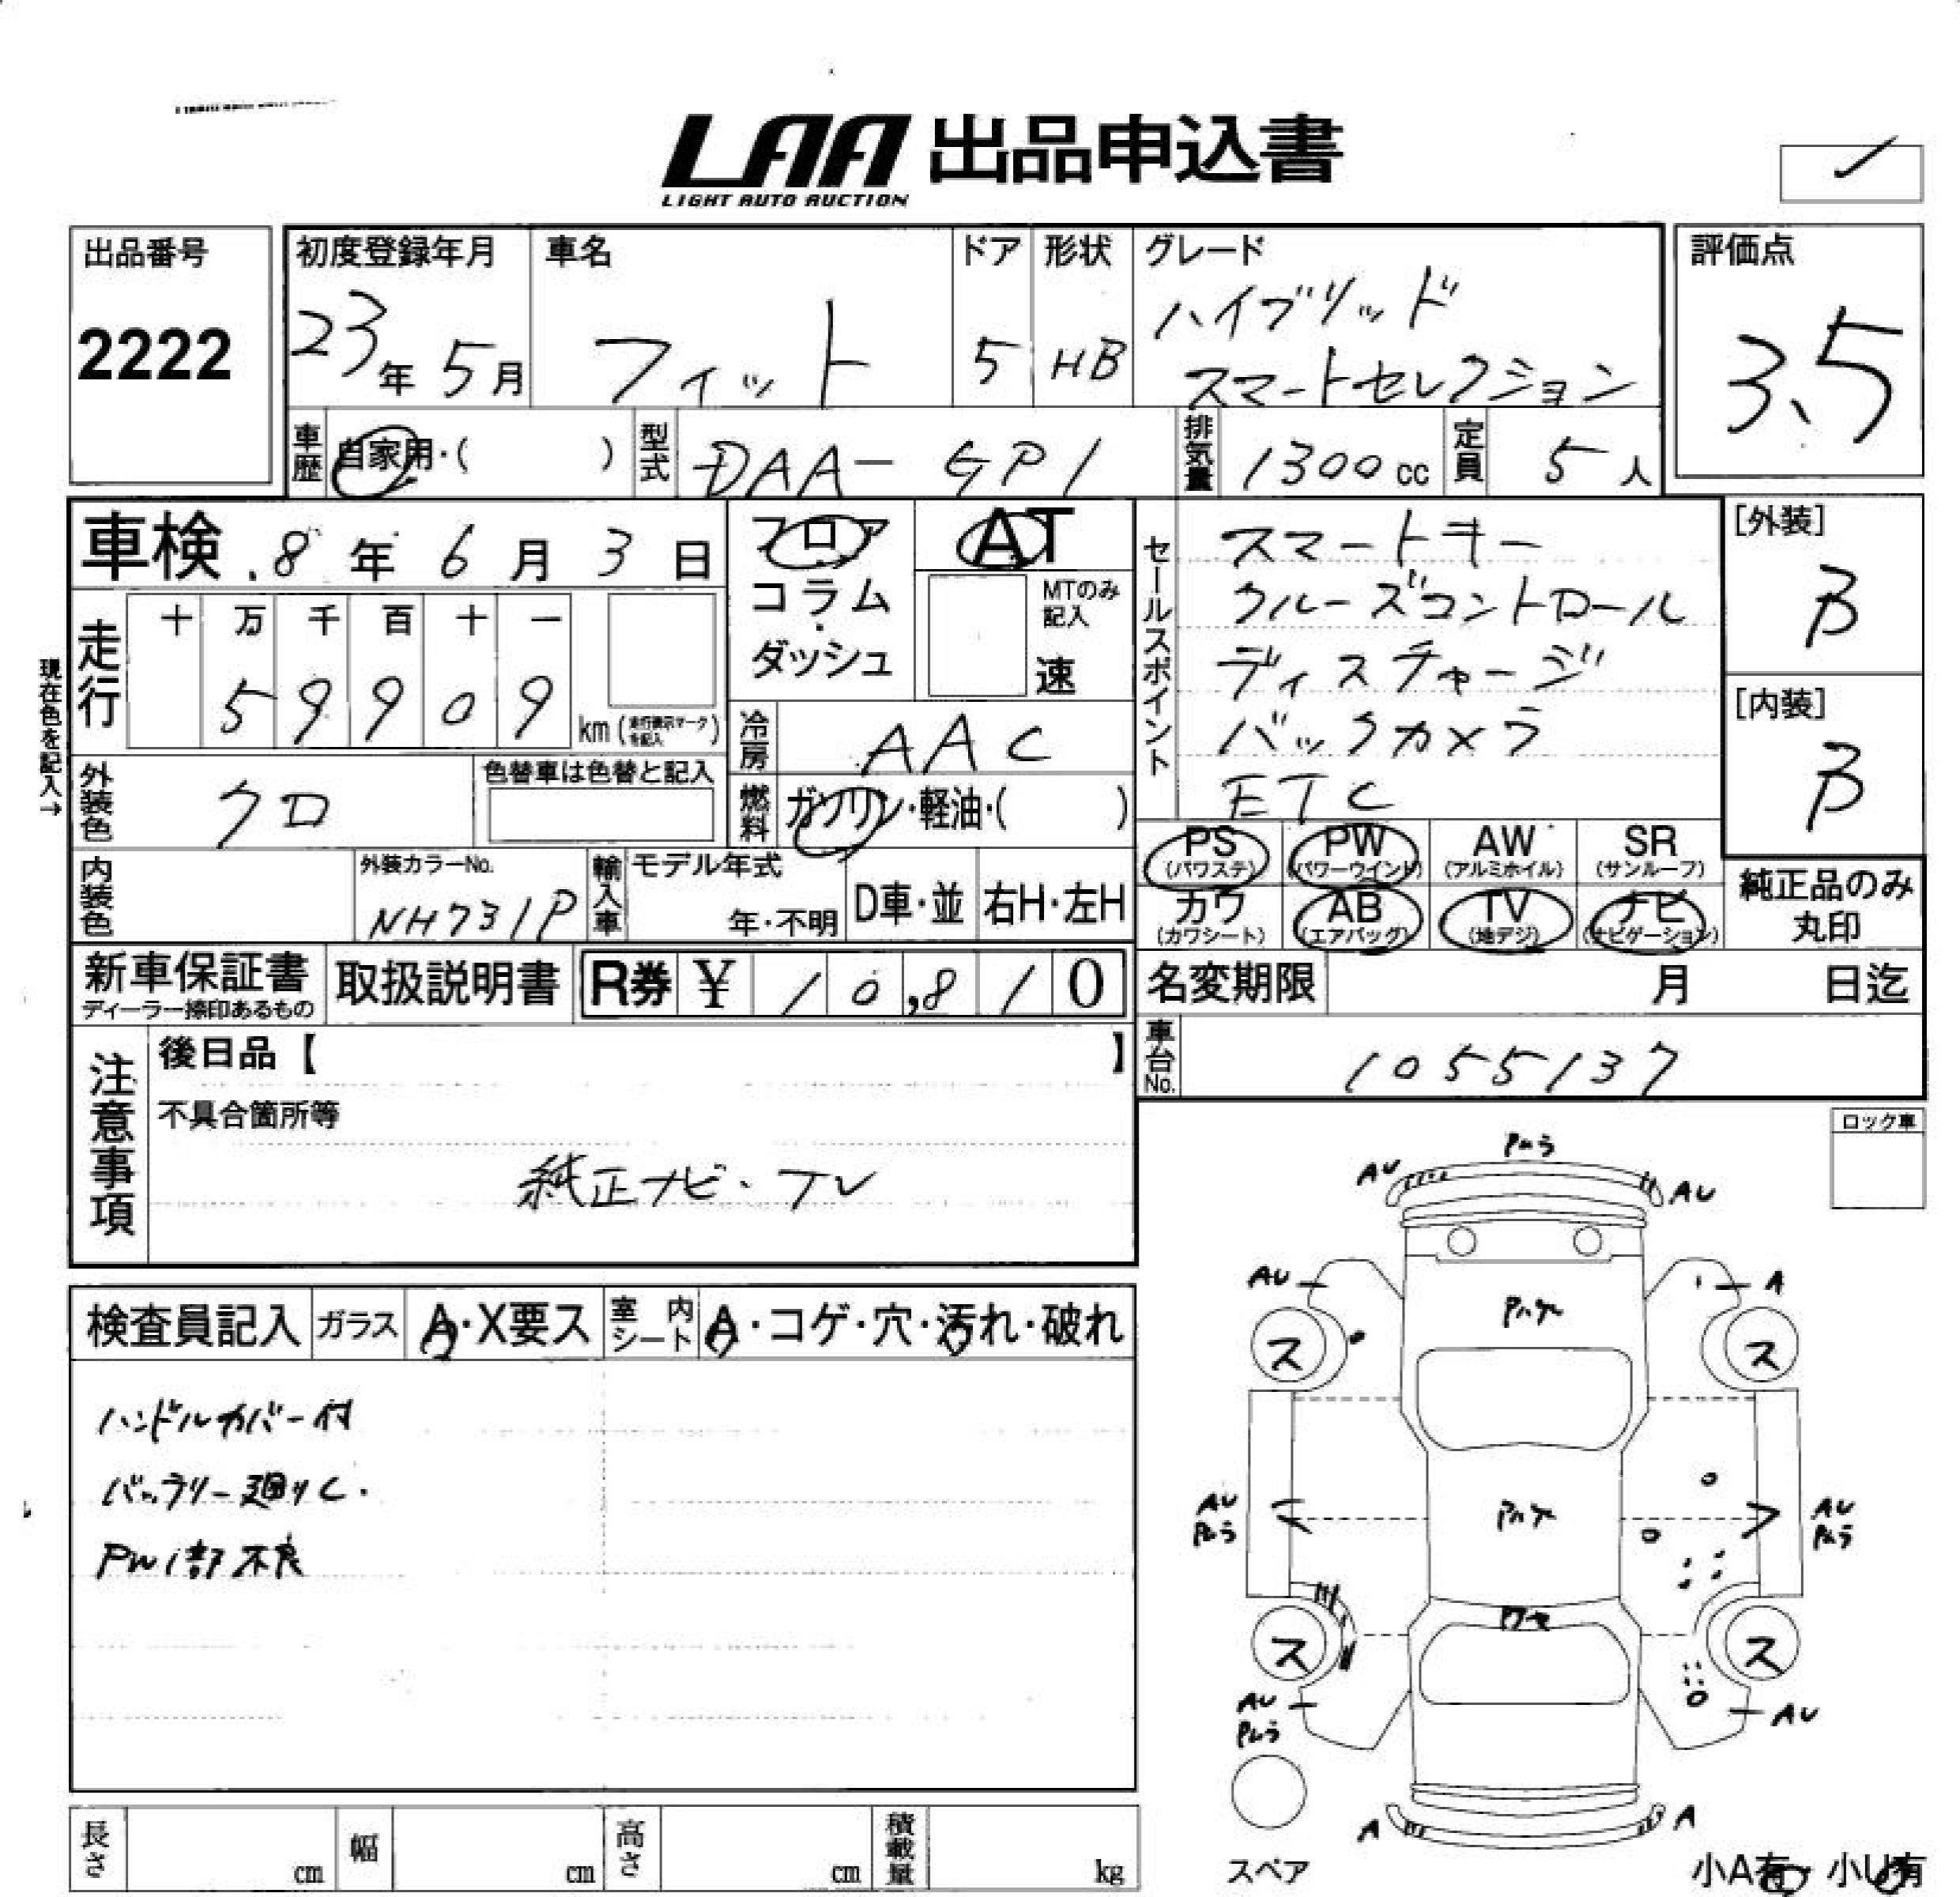 LAA 出品申込書
LIGHT AUTO AUCTION
出品番号
2222
初度登録年月
23年 5月
車名
フィット
ドア
5
形状
HB
グレード
ハイブリッド
スマートセレクション
評価点
3.5
車歴
自家用・( )
型式
DAA-GP1
排気量
1300cc
定員
5人
車検 8年 6月 3日
フロア
コラム
・
ダッシュ
AT
MTのみ
記入
速
セールスポイント
スマートキー
クルーズコントロール
ディスチャージ
バックカメラ
ETC
[外装]
B
[内装]
B
現在色を記入→
走行
十 万 千 百 十 一
5 9 9 0 9
km(走行表示マークを記入)
冷房
AAC
外装色
クロ
色替車は色替と記入
燃料
ガソリン・軽油・( )
PS
(パワステ)
PW
(パワーウインド)
AW
(アルミホイル)
SR
(サンルーフ)
カワ
(カワシート)
AB
(エアバッグ)
TV
(地デジ)
ナビ
(ナビゲーション)
純正品のみ
丸印
内装色
外装カラーNo.
NH731P
輸入車
モデル年式
年・不明
D車・並
右H・左H
新車保証書
ディーラー捺印あるもの
取扱説明書
R券 ¥ 10,810
名変期限 月 日迄
車台No.
1055137
注意事項
後日品【 】
不具合箇所等
純正ナビ・TV
ロック車
検査員記入
ガラス
A・X要ス
室内シート
A・コゲ・穴・汚れ・破れ
ハンドルカバー付
バッテリー廻りC.
PW1部不良
Pムラ
AU
AU
AU
A
Pハゲ
ス
ス
AU
Pムラ
Pハゲ
AU
Pムラ
ワセ
ス
ス
AU
Pムラ
AU
A
A
スペア
小A有・小U有
長さ
cm
幅
cm
高さ
cm
積載量
kg